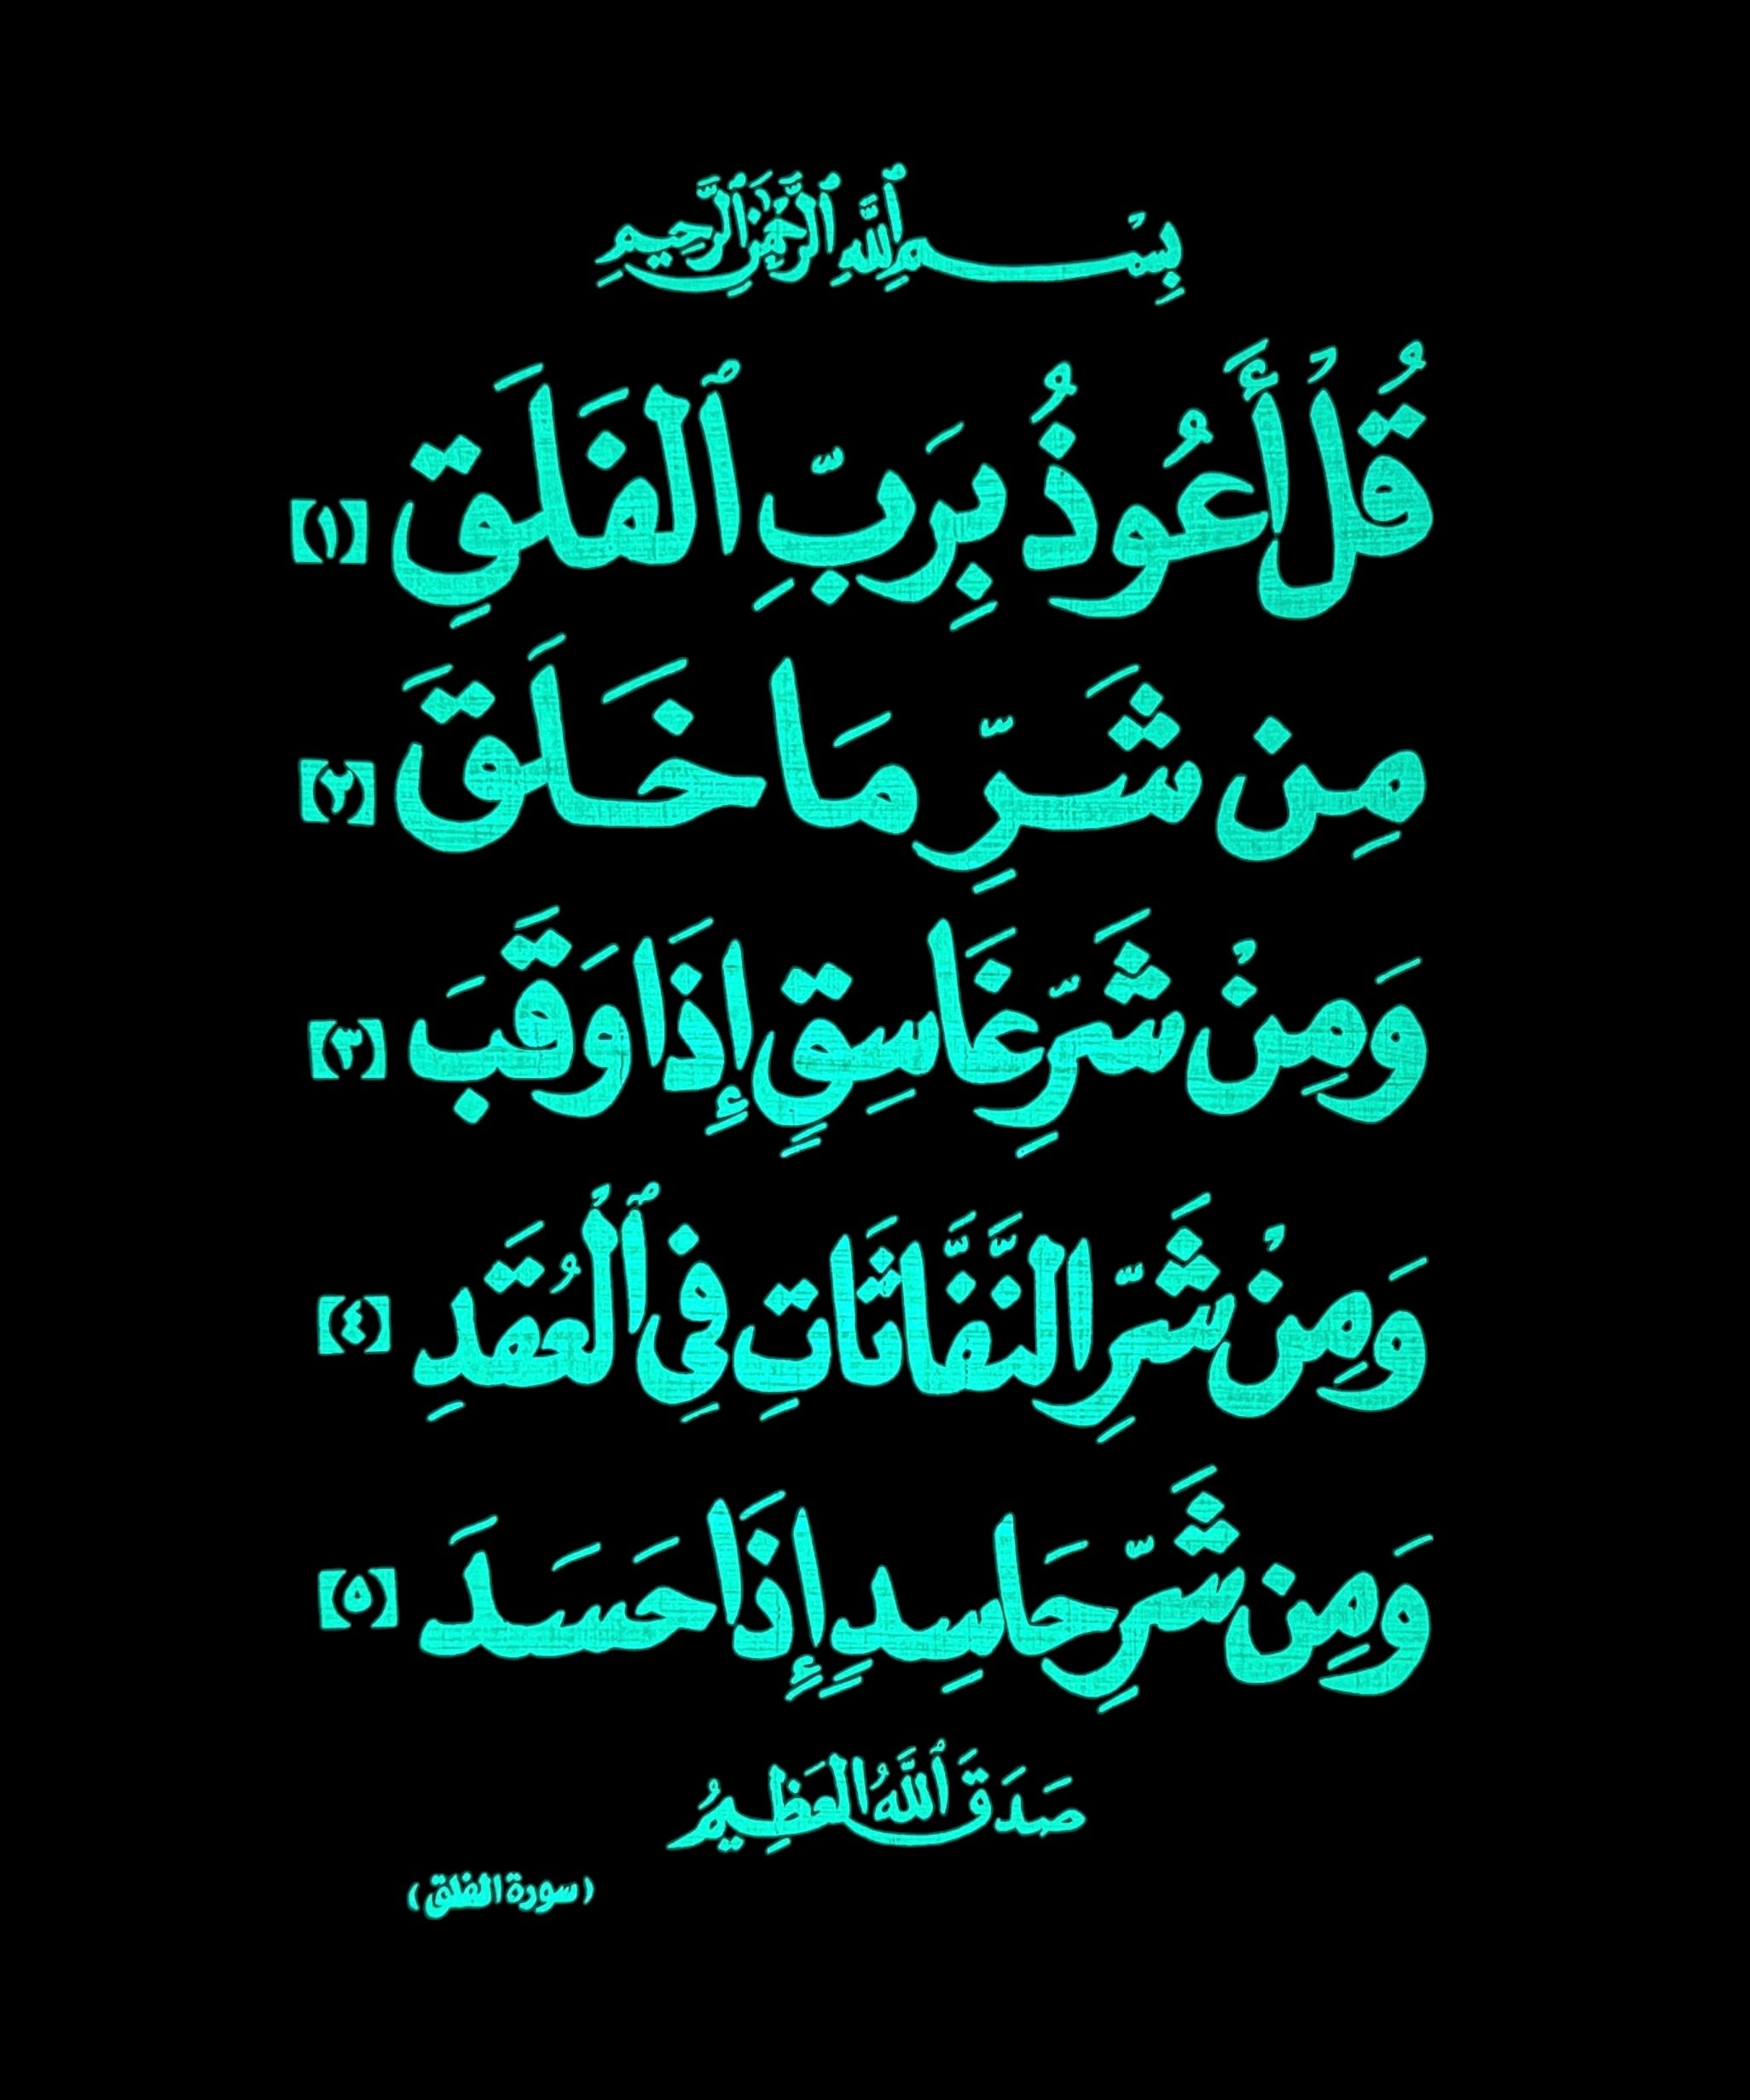 بِسْمِ ٱللَّهِ ٱلرَّحْمَٰنِ ٱلرَّحِيمِ
قُلْ أَعُوذُ بِرَبِّ ٱلْفَلَقِ (١)
مِن شَرِّ مَا خَلَقَ (٢)
وَمِنْ شَرِّ غَاسِقٍ إِذَا وَقَبَ (٣)
وَمِنْ شَرِّ النَّفَّاثَاتِ فِي ٱلْعُقَدِ (٤)
وَمِن شَرِّ حَاسِدٍ إِذَا حَسَدَ (٥)
صَدَقَ ٱللَّهُ العَظِيمُ
(سورة الفلق)